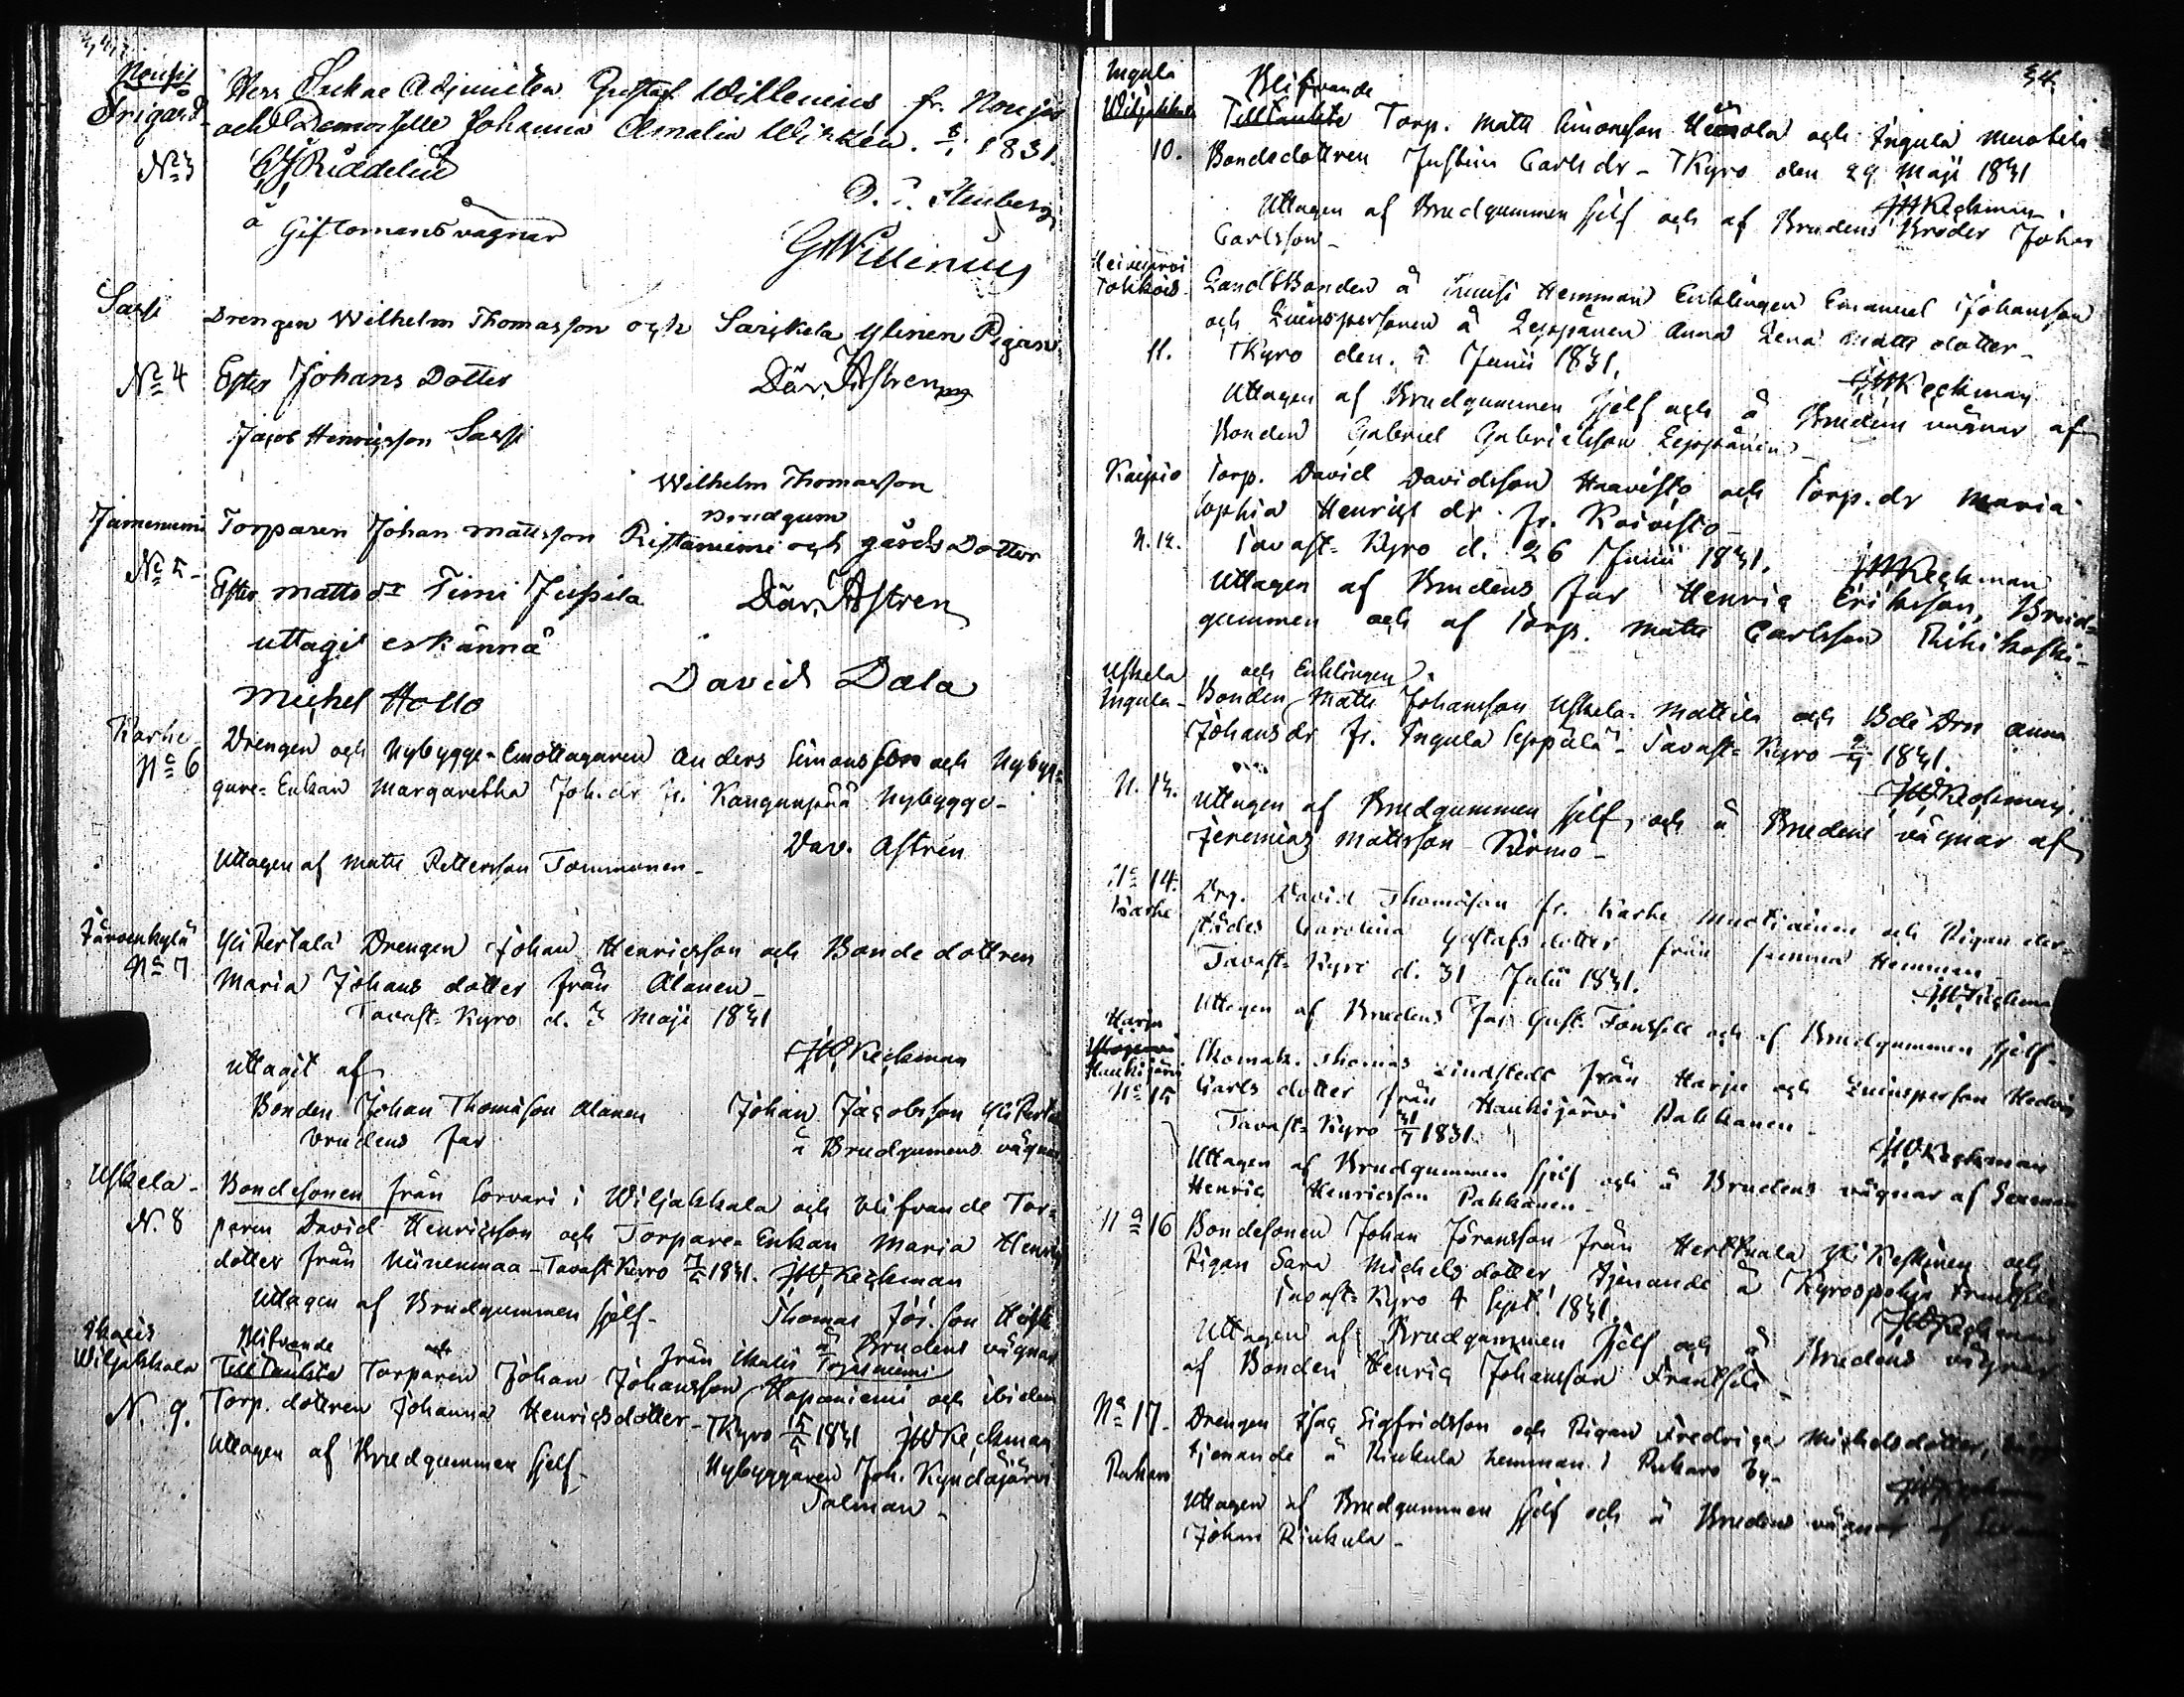 Nousis
Frigård
Herr Sockne Adjuncten Gustaf Willenius fr. Nousis
och Demoiselle Johanna Amalia Winkén. 1831.
No 3
å Giftomans vägnar
GWillenius
Sassi
Drengen Wilhelm Thomasson och Sarckela Ylinen Pigan
No 4
Ester Johans Dotter
Dav. Astren
Jacob Henricsson Sassi
Wilhelm Thomasson
Brudgum
Jumesniemi
Torparen Johan Mattsson Ristaniemi och gårds Dotter
No 5
Ester Matts dr Timi Jussila
Dav. Astren
uttagit erkänna
David Dala
Michel Hollo
Karhe
No 6
Drengen och Nybygge-Emottagaren Anders Simonsson och Nybyg-
gare-Enkan Margaretha Joh. dr fr. Kangunpää Nybygge-
Dav. Astrén
Uttagen af Matts Pettersson Tommonen-
Järvenkylä
No 7
Yli Pertula Drengen Johan Henricsson och Bonde dottren
Maria Johans dotter från Alanen-
Tavast-Kyro d. Maji 1831
JWKeckman
Uttagit af
Bonden Johan Thomasson Alanen
Johan Jacobsson Yli Pertu
brudens far
å Brudgumens vägnar
Uskela-
N. 8
Bondesonen från Sorvari i Wiljakkala och blifvande Tor-
paren David Henricsson och Torpare-Enkan Maria Henrics
dotter från Niinenmaa-TavastKyro 1831. JWKeckman
Uttagen af Brudgummen sjelf-
Thomas
från Ikalis å Brudens vägnar
Ikalis
Wiljakkala
Blifvande
Torparen Johan Johansson Hapaniemi och ibidem
N. 9.
Torp. dottren Johanna Henricsdotter-TKyro 1831 JWKeckman
Uttagen af Brudgummen sjelf-
Nybyggaren Joh. Kyndäsjärvi
Talman-
34.
Ingula
Wiljakkala
10.
Blifvande
Torp. Matts Simonsson och Ingula
Bondedottren Justina Carls dr- TKyro den 29 Maji 1831
JWKeckman-
Uttagen af Brudgummen sjelf och af Brudens Broder Johan
Carlsson-
Heinijärvi
LandtBonden å Hemman Enklingen Emanuel Johansson
och Quinspersonen å Leppänen Anna Lena Matts dotter-
11.
TKyro den. 5 Junii 1831.
JWKeckman
Uttagen af Brudgummen sjelf och å Brudens vägnar af
Bonden Gabriel Gabrielsson Leppänen-
Kaipio
Torp. David Davidsson Haavisto och Torp. dr Maria
Sophia Henrics dr fr. Koivisto-
N. 12.
Tavast-Kyro d. 26 Junii 1831.
JWKeckman
Uttagen af Brudens far Henric Ericsson, Brud-
gummen och af Torp. Matts Carlsson Riihikoski-
Uskela
Ingula-
och Enklingen
Bonden Matts Johansson Uskela-Mattila och Bde Drn Anna
Johans dr fr. Ingula Seppälä-Tavast-Kyro 1831.
N. 13.
JWKeckman.
Uttagen af Brudgummen sjelf, och å Brudens vägnar af
Jeremias Mattsson Kirmo-
No 14.
Karhe
Drg. David Thomasson fr. Karhe Muotiainen och Pigan der-
städes Carolina Gustafs dotter från samma Hemman-
Tavast-Kyro d. 31 Julii 1831.
Uttagen af Brudens far Gust. och af Brudgummen sjelf-
Harju
Haukijärvi
No 15
Skomak. Thomas Lindstedt från Harju och Quinsperson Hedvig
Carls dotter från Haukijärvi Pakkanen-
Tavast-Kyro 31/7 1831.
JWKeckman
Uttagen af Brudgummen sjelf och å Brudens vägnar af
Henric Henricsson Pakkanen-
No 16
Bondesonen Johan Göransson från Herttuala Yli Keskinen och
Pigan Sara Michels dotter, tjenande å Kyrospohja Frantsila
Tavast-Kyro 4 Sept. 1831.
JWKeckman
Uttagen af Brudgummen sjelf och å Brudens vägnar
af Bonden Henric Johansson Frantsila-
No 17.
Drengen Isac Sigfridsson och Pigan Fredrica Michelsdotter,
tjenande å Riukula hemman i Puharo by-
Puharo
JWKeckman
Uttagen af Brudgummen sjelf och å Brudens vägnar af
Johan Riukula-